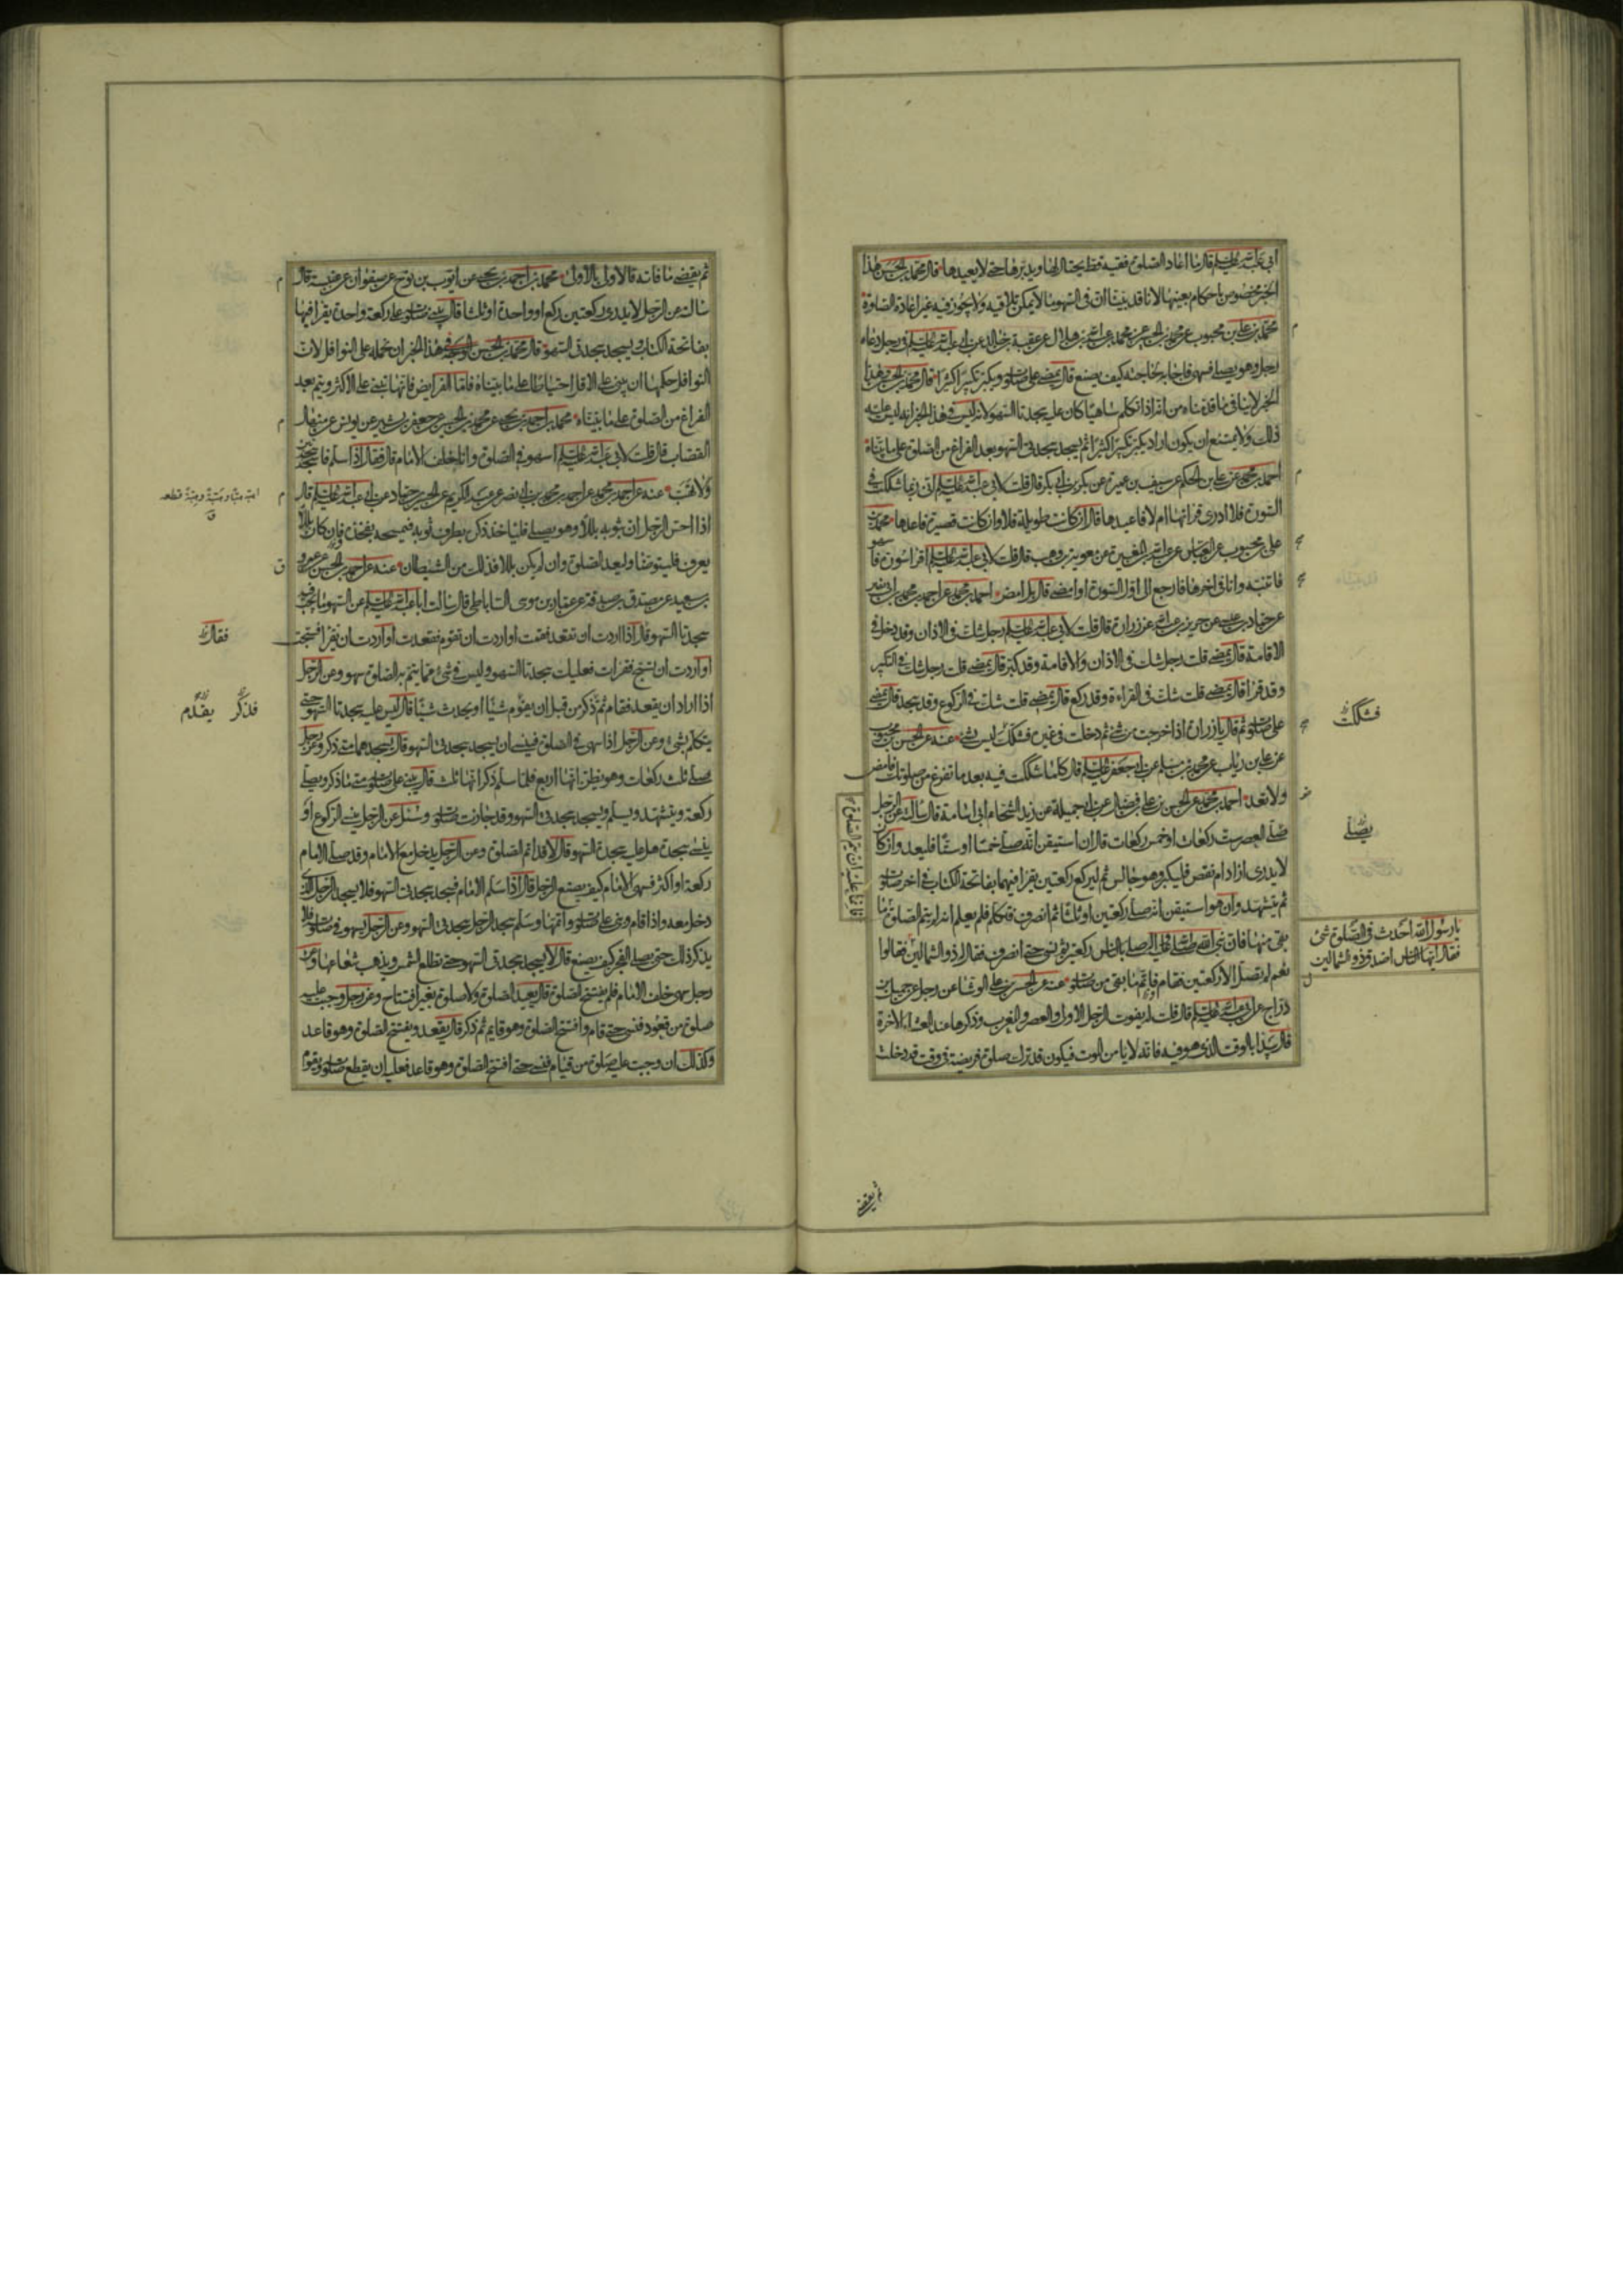 ابي عبد الله عليه السلام قال ما اعاد الصلوة فقيه قط يحتال لها ويدبرها حتى لا يعيدها قال محمد بن الحسن هذا
الخبر مخصوص باحكام بعينها لانا قد بينا ان في السهو ما لا يمكن تلافيه ولا يجوز فيه غير اعادة الصلوة
محمد بن علي بن محبوب عن محمد بن الحسين عن محمد بن عبد الله بن هلال عن عقبة بن خالد عن ابي عبد الله عليه السلام في رجل دعاه
رجل وهو يصلي فسهى فاجابه بحاجته كيف يصنع قال يمضي على صلوته ويكبر تكبيرا كثيرا قال محمد بن الحسن وهذا
الخبر لا ينافي ما قدمناه من انه اذا تكلم ساهيا كان عليه سجدتا السهو لانه ليس في هذا الخبر انه ليس عليه
ذلك ولا يمتنع ان يكون اراد يكبر تكبيرا كثيرا ثم يسجد سجدتي السهو بعد الفراغ من الصلوة على ما بيناه
احمد بن محمد عن علي بن الحكم عن سيف بن عميرة عن بكر بن ابي بكر قال قلت لابي عبد الله عليه السلام اني ربما شككت في
السورة فلا ادري قراتها ام لا فاعيدها قال ان كانت طويلة فلا وان كانت قصيرة فاعدها محمد بن
علي بن محبوب عن العباس عن عبد الله بن المغيرة عن معوية بن وهب قال قلت لابي عبد الله عليه السلام اقرا سورة فا
سهو
فاتنبه وانا في اخرها فارجع الى اول السورة او امضي قال بل امض احمد بن محمد عن احمد بن محمد بن ابي نصر
عن حماد بن عيسى عن حريز بن عبد الله عن زرارة قال قلت لابي عبد الله عليه السلام رجل شك في الاذان وقد دخل في
الاقامة قال يمضي قلت رجل شك في الاذان والاقامة وقد كبر قال يمضي قلت رجل شك في التكبير
وقد قرا قال يمضي قلت شك في القراءة وقد ركع قال يمضي قلت شك في الركوع وقد سجد قال يمضي
على صلوته ثم قال يا زرارة اذا خرجت من شئ ثم دخلت في غيره فشكك ليس بشئ عنه عن الحسن بن محبوب
فشككت
عن علي بن رياب عن محمد بن مسلم عن ابي جعفر عليه السلام قال كلما شككت فيه بعد ما تفرغ من صلوتك فامض
ولا تعد احمد بن محمد عن الحسن بن علي بن فضال عن ابي جميلة عن زيد الشحام ابي اسامة قال سالته عن الرجل
صلى العصر ست ركعات او خمس ركعات قال ان استيقن انه صلى خمسا او ستا فليعد وان كان
يصلي
لا يدري ازاد ام نقص فليكبر وهو جالس ثم ليركع ركعتين يقرا فيهما بفاتحة الكتاب في اخر صلوته
ثم يتشهد وان هو استيقن انه صلى ركعتين او ثلثا ثم انصرف فتكلم فلم يعلم انه لم يتم الصلوة ما
فانما عليه ان يتم الصلوة
بقي منها فان نبي الله صلى الله عليه واله صلى بالناس ركعتين ثم نسي حتى انصرف فقال له ذو الشمالين فقالوا
يا رسول الله احدث في الصلوة شئ
فقال ايها الناس اصدق ذو الشمالين
نعم لم تصل الا ركعتين فقام فاتم ما بقي من صلوته عنه عن الحسن بن علي الوشا عن رجل عن جميل بن
دراج عن ابي عبد الله عليه السلام قال قلت له يفوت الرجل الاولى والعصر والمغرب وذكرها عند العشاء الاخرة
قال يبدا بالوقت الذي هو فيه فانه لا يامن الموت فيكون قد ترك صلوة فريضة في وقت قد دخلت
ثم يقضي
ثم يقضي ما فاته فالاولى بالاولى محمد بن احمد بن يحيى عن ايوب بن نوح عن صفوان عن عنبسة قال
سالته عن الرجل لا يدري ركعتين ركع او واحدة او ثلثا قال يبني صلوته على ركعة واحدة يقرا فيها
بفاتحة الكتاب ويسجد سجدتي السهو قال محمد بن الحسن الوجه في هذا الخبر ان نحمله على النوافل لان
النوافل حكمها ان يبني على الاقل احتياطا على ما بيناه فاما الفرايض فانها تبنى على الاكثر ويتم بعد
الفراغ من الصلوة على ما بيناه محمد بن احمد بن يحيى عن محمد بن الحسين عن جعفر بن بشير عن يونس عن منهال
القصاب قال قلت لابي عبد الله عليه السلام اسهو في الصلوة وانا خلف الامام قال فقال اذا سلم فاسجد سجدتين
ولا تهب عنه عن احمد بن محمد عن احمد بن محمد بن ابي نصر عن عبد الكريم عن الحسين بن حماد عن ابي عبد الله عليه السلام قال
اذا احس الرجل ان بثوبه بللا وهو يصلي فلياخذ ذكره بطرف ثوبه فيمسحه بفخذه فان كان بللا
يعرف فليتوضا وليعد الصلوة وان لم يكن بللا فذلك من الشيطان عنه عن احمد بن الحسن عن عمرو
بن سعيد عن مصدق بن صدقة عن عمار بن موسى الساباطي قال سالت ابا عبد الله عليه السلام عن السهو ما يجب فيه
سجدتا السهو قال اذا اردت ان تقعد فقمت او اردت ان تقوم فقعدت او اردت ان تقرا فسبحت
فقال
او اردت ان تسبح فقرات فعليك سجدتا السهو وليس في شئ مما يتم به الصلوة سهو وعن الرجل
اذا اراد ان يقعد فقام ثم ذكر من قبل ان يقوم شيئا او يحدث شيئا قال ليس عليه سجدتا السهو حتى
فذكر يقدم
يتكلم بشئ وعن الرجل اذا سهى في الصلوة فينسى ان يسجد سجدتي السهو قال يسجدهما متى ذكر وعن رجل
صلى ثلث ركعات وهو يظن انها اربع فلما سلم ذكر انها ثلث قال يبني على صلوته متى ما ذكر ويصلي
ركعة ويتشهد ويسلم ويسجد سجدتي السهو وقد جازت صلوته وسئل عن الرجل ينسى الركوع او
ينسى سجدة هل عليه سجدة السهو قال لا قد اتم الصلوة وعن الرجل يدخل مع الامام وقد صلى الامام
ركعة او اكثر فسهى الامام كيف يصنع الرجل قال اذا سلم الامام فسجد سجدتي السهو فلا يسجد الرجل الذي
دخل معه واذا قام وبنى على صلوته واتمها وسلم سجد الرجل سجدتي السهو وعن الرجل يسهو في صلوته فلا
يذكر ذلك حتى يصلي الفجر كيف يصنع قال لا يسجد سجدتي السهو حتى تطلع الشمس ويذهب شعاعها وعن
رجل سهى خلف الامام فلم يفتتح الصلوة قال يعيد الصلوة ولا صلوة بغير افتتاح وعن رجل وجبت عليه
صلوة من قعود فنسي حتى قام وافتتح الصلوة وهو قايم ثم ذكر قال يقعد ويفتتح الصلوة وهو قاعد
وكذلك ان وجبت عليه صلوة من قيام فنسي حتى افتتح الصلوة وهو قاعد فعليه ان يقطع صلوته ويقوم